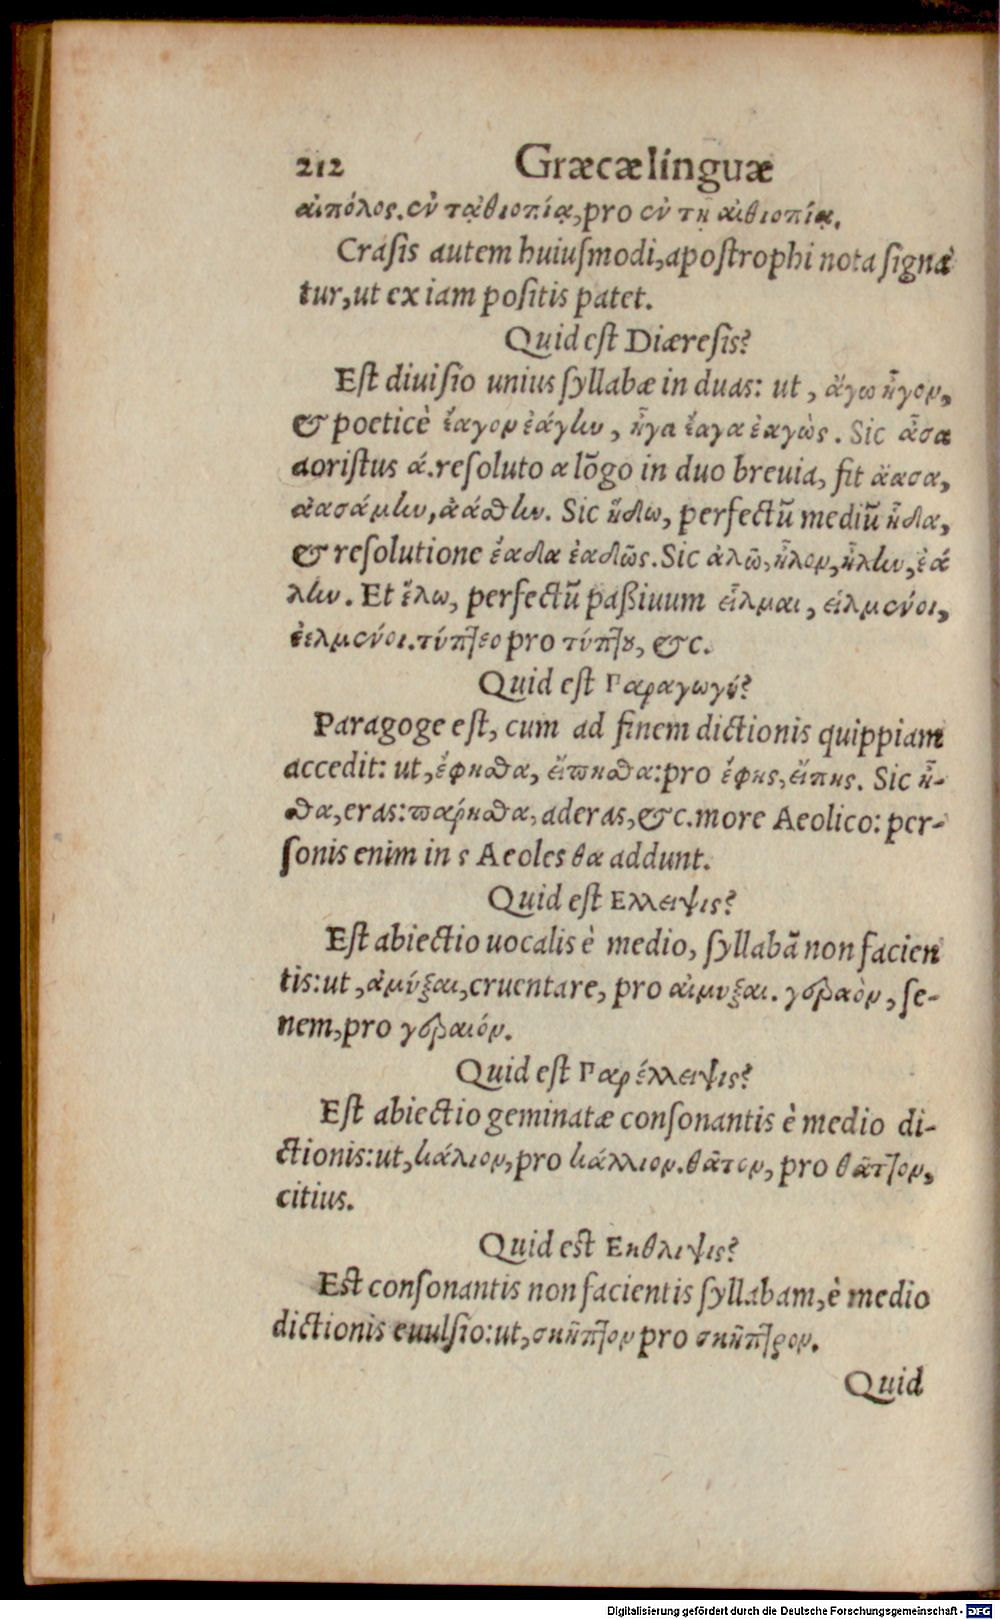 212 Græcæ linguæ
αἰπόλος. ἐν τᾀθιοπίᾳ, pro ἐν τῇ αἰθιοπίᾳ.
Craſis autem huiuſmodi, apoſtrophi nota ſigna
tur, ut ex iam poſitis patet.
Quid eſt Diæreſis?
Eſt diuiſio unius ſyllabæ in duas: ut, ἄγω ἦγον,
& poeticè ἔαγον ἐάγην, ἦγα ἔαγα ἐαγὼς. Sic ἆσα
aoriſtus ά. reſoluto α lõgo in duo breuia, fit ἄασα,
ἀασάμην, ἀάσθην. Sic ἥδω, perfectũ mediũ ἧδα,
& reſolutione ἕαδα ἑαδῶς. Sic ἁλῶ, ἧλον, ἧλην, ἑά
λην. Et ἔλω, perfectũ paßiuum εἶλμαι, εἰλμένοι,
ἐελμένοι. τύπτεο pro τύπτου, &c.
Quid eſt Παραγωγή?
Paragoge eſt, cum ad finem dictionis quippiam
accedit: ut, ἔφησθα, εἴπησθα: pro ἔφης, εἴπης. Sic ἦ-
σθα, eras: παρῆσθα, aderas, &c. more Aeolico: per-
ſonis enim in ς Aeoles θα addunt.
Quid eſt Ελλειψις?
Eſt abiectio uocalis è medio, ſyllabã non facien
tis: ut, ἀμύξαι, cruentare, pro αἰμυξαι. γεραὸν, ſe-
nem, pro γεραιόν.
Quid eſt Παρέλλειψις?
Eſt abiectio geminatæ conſonantis è medio di-
ctionis: ut, κάλιον, pro κάλλιον. θᾶτον, pro θᾶττον,
citius.
Quid est Εκθλιψις?
Est conſonantis non facientis ſyllabam, è medio
dictionis euulſio: ut, σκῆπτον pro σκῆπτρον.
Quid
Digitalisierung gefördert durch die Deutsche Forschungsgemeinschaft - DFG